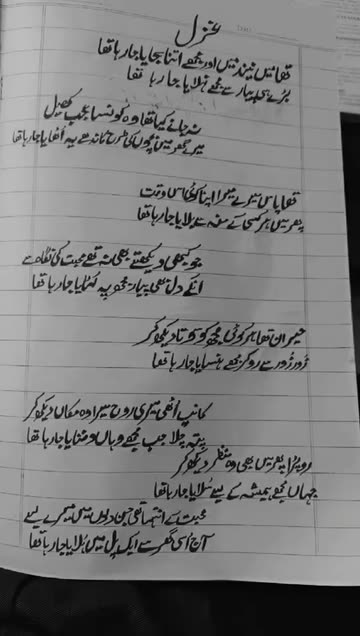 غزل
تھا میں نیند میں اور مجھے اتنا سجایا جا رہا تھا
بڑے ہی پیار سے مجھے نہلایا جا رہا تھا
نہ جانے کیا تھا وہ کونسا عجب کھیل
میرے گھر میں بچوں کی طرح کاندھے پہ اٹھایا جا رہا تھا
تھا پاس میرے میرا اپنا کوئی اس وقت
پھر میں ہر کسی کے منہ سے بلایا جا رہا تھا
جو کبھی دیکھتے بھی نہ تھے محبت کی نگاہ سے
انکے دل بھی پیار مجھ پہ لٹایا جا رہا تھا
حیران تھا ہر کوئی مجھ کو سوتا دیکھ کر
زور زور سے رو کر مجھے ہنسایا جا رہا تھا
کانپ اٹھی میری روح میرا وہ مکاں دیکھ کر
پتہ چلا جب مجھے وہاں دفنایا جا رہا تھا
رو پڑا پھر میں بھی وہ منظر دیکھ کر
جہاں مجھے ہمیشہ کے لیے سلایا جا رہا تھا
محبت کے انتہا تھی جن دلوں میں میرے لیے
آج اسی گھر سے ایک پل میں بلایا جا رہا تھا